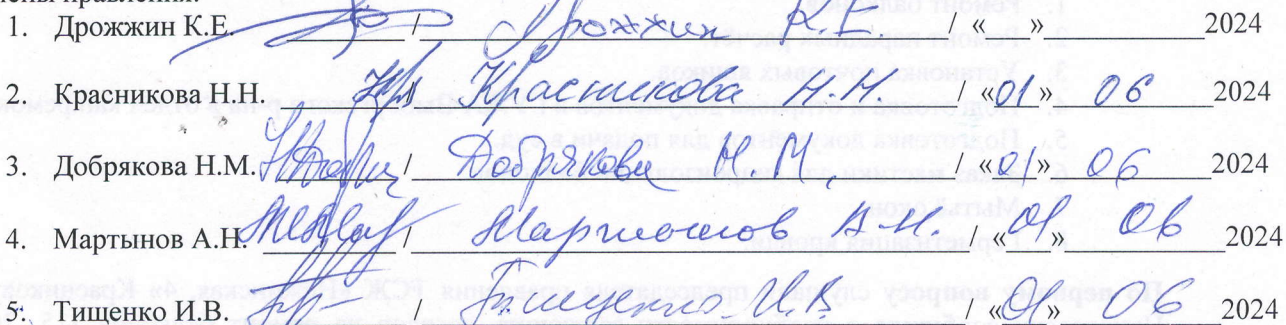 члены правления:
1. Дрожжин К.Е. / Дрожжин К Е / « » 2024
2. Красникова Н.Н. / Красникова Н.Н / «01» 06 2024
3. Добрякова Н.М. / Добрякова Н.М. / «01» 06 2024
4. Мартынов А.Н. / Мартынов А.Н. / «01» 06 2024
5. Тищенко И.В. / Тищенко И.В. / «01» 06 2024